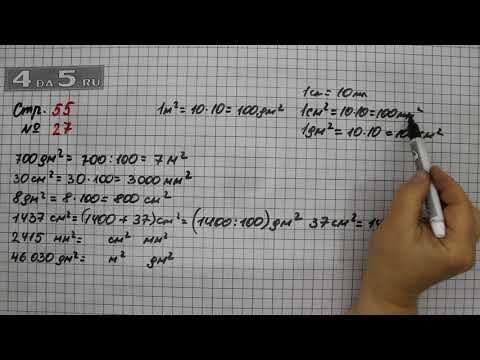 4 ДА 5.RU
Стр. 55
№ 27
1м² = 10·10 = 100дм²
1см = 10мм
1см² = 10·10 = 100мм²
1дм² = 10·10 = см²
700дм² = 700:100 = 7 м²
30см² = 30·100 = 3000 мм²
8дм² = 8·100 = 800 см²
1437 см² = (1400 + 37)см² = (1400:100)дм² 37см² =
2415 мм² = см² мм²
46 030 дм² = м² дм²